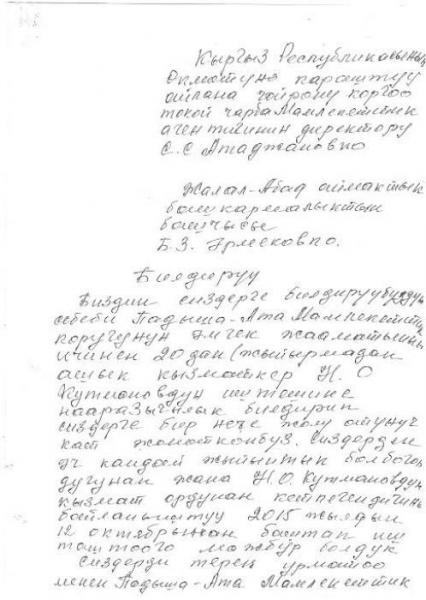 Кыргыз Республикасынын
Окмотуно караштуу
айлана чойрону коргоо
токой чарба Мамлекеттик
агенттигинин директору
С.С Атаджановко
Жалал-Абад аймактык
башкармалыктын
башчысы
Б.З. Эрмековко.
Билдируу
Биздин сиздерге билдируубуздун
себеби Падыша-Ата Мамлекеттик
коругунун эмгек жааматынын
ичинен 20 дан (жыйырмадан
ашык кызматкер Н. О
Кутмановдун иштешине
нааразычылык билдирип
сиздерге бир нече жолу отунуч
кат жонотконбуз. Сиздерден
эч кандай жыйынтык болбогон
дугунан жана Н.О. Кутмановдун
кызмат ордунан кетпегендигине
байланыштуу 2015 жылдын
12 октябрынан баштап иш
таштоого мажбур болдук
Сиздерди терең урматоо
менен Падыша-Ата Мамлекеттик